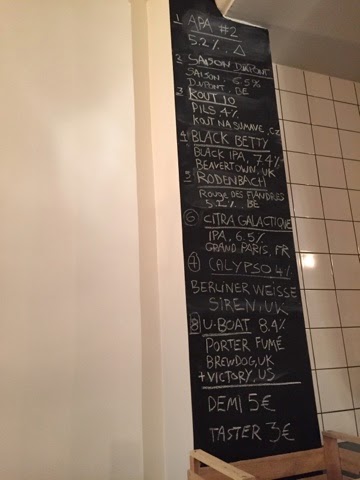 1 APA #2
5.2%. △
2 SAISON DUPONT
SAISON. 6.5%
DUPONT, BE
3 KOUT 10
PILS 4%
KOUT NA SUMAVE, CZ
4 BLACK BETTY
BLACK IPA, 7.4%
BEAVERTOWN, UK
5 RODENBACH
ROUGE DES FLANDRES
BE
6 CITRA GALACTIQUE
IPA, 6.5%
GRAND PARIS, FR
7 CALYPSO 4%
BERLINER WEISSE
SIREN, UK
8 U-BOAT 8.4%
PORTER FUMÉ
BREWDOG, UK
+ VICTORY, US
DEMI 5€
TASTER 3€